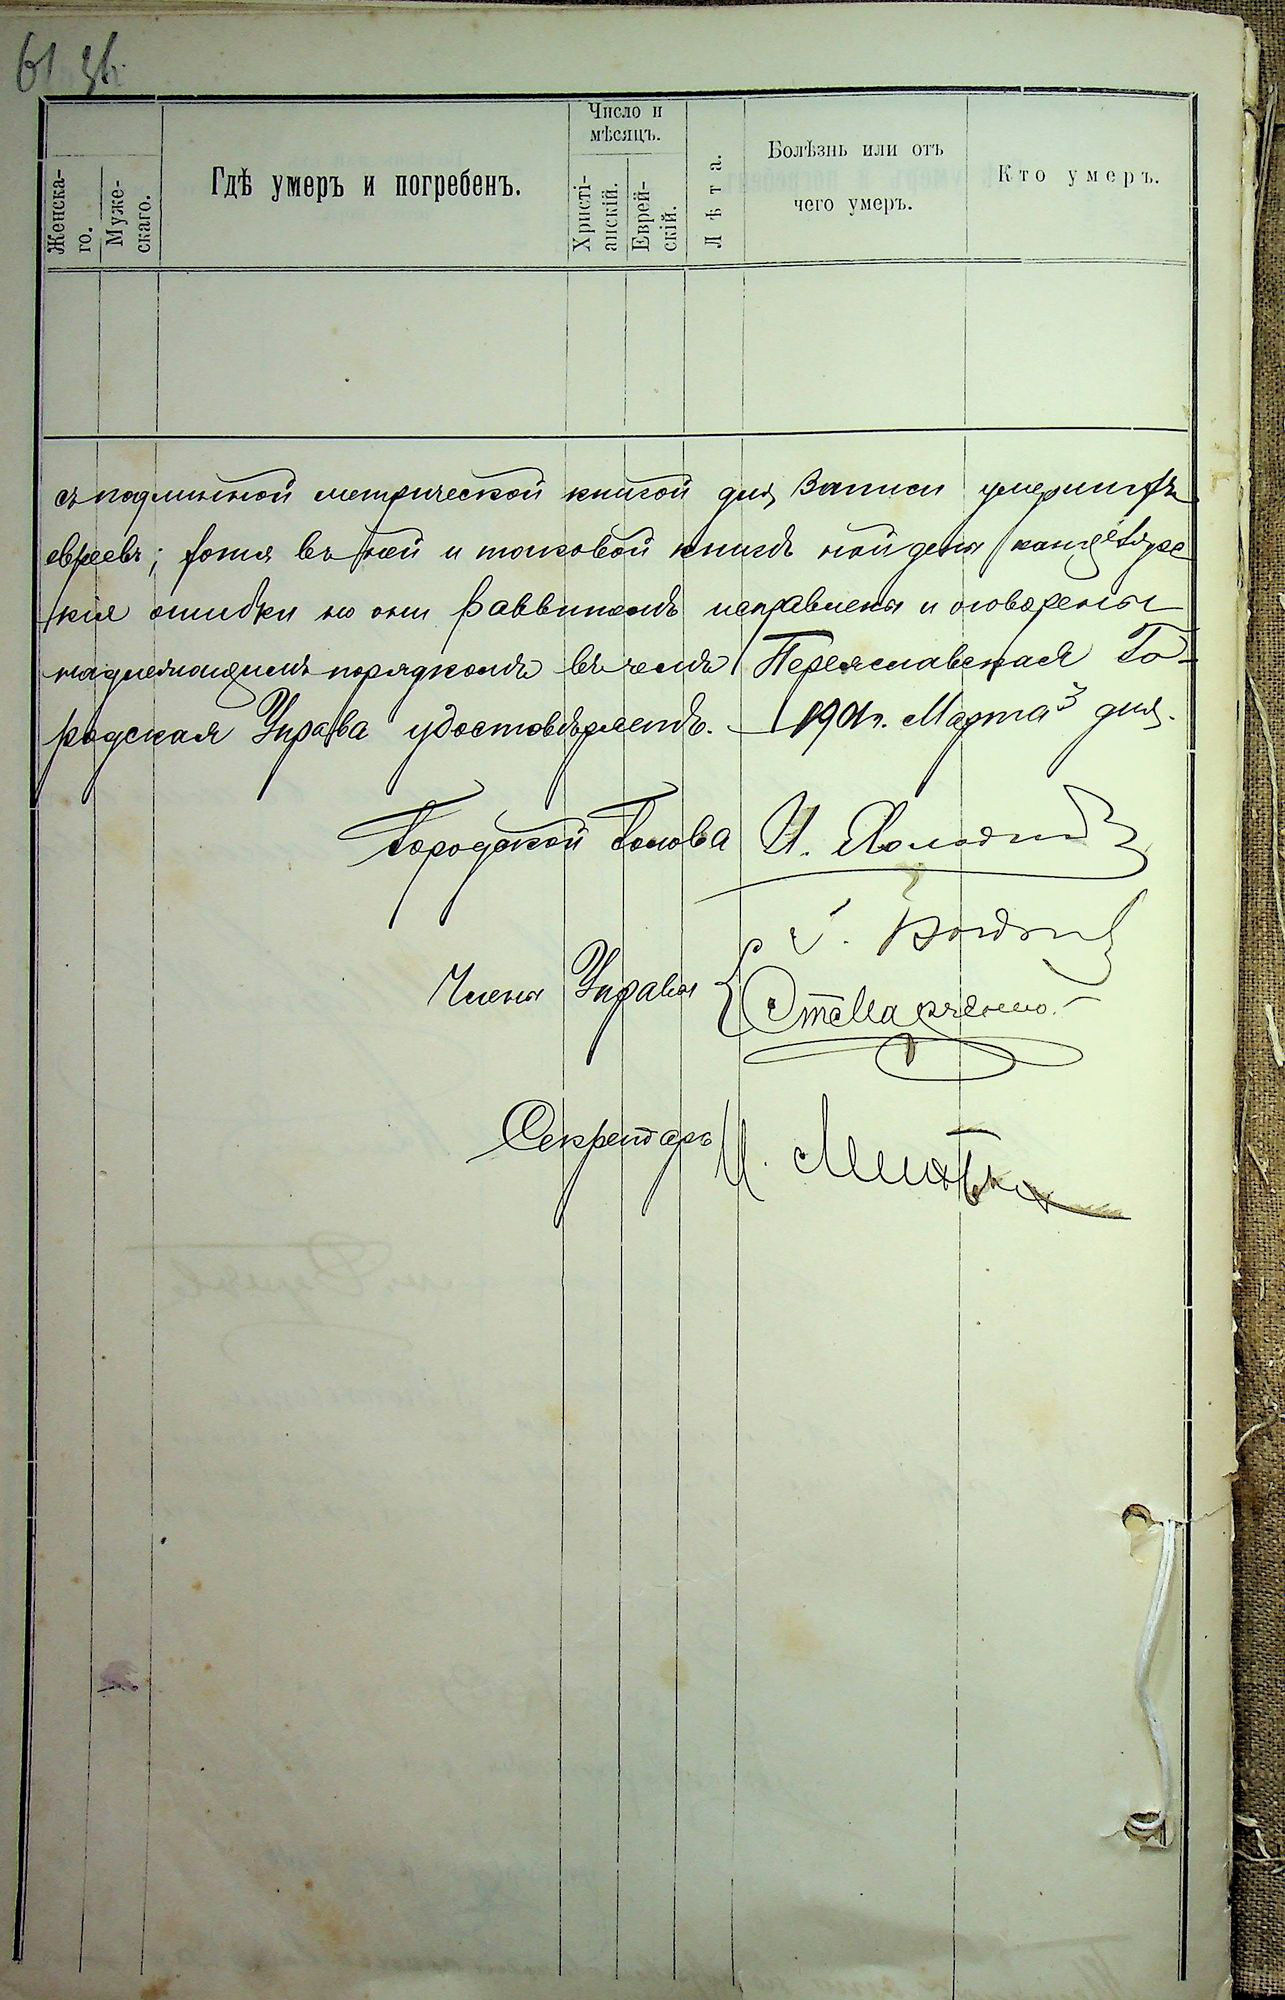 61
Женска-
го.
Муже-
скаго.
Гдѣ умеръ и погребенъ.
Число и
мѣсяцъ.
Христі-
анскій.
Еврей-
скій.
Лѣта.
Болѣзнь или отъ
чего умеръ.
Кто умеръ.
съ подлинной метрической книгой для записи умершихъ
евреевъ; хотя въ ней и таковой книгѣ найдены канцеляр
кія ошибки но они Раввиномъ исправлены и оговорены
надлежащимъ порядкомъ въ чемъ Переяславская Го-
родская Управа удостовѣряетъ. 1901 г. Марта 3 дня.
Городской Голова И.
Члены Управы
Секретарь И.